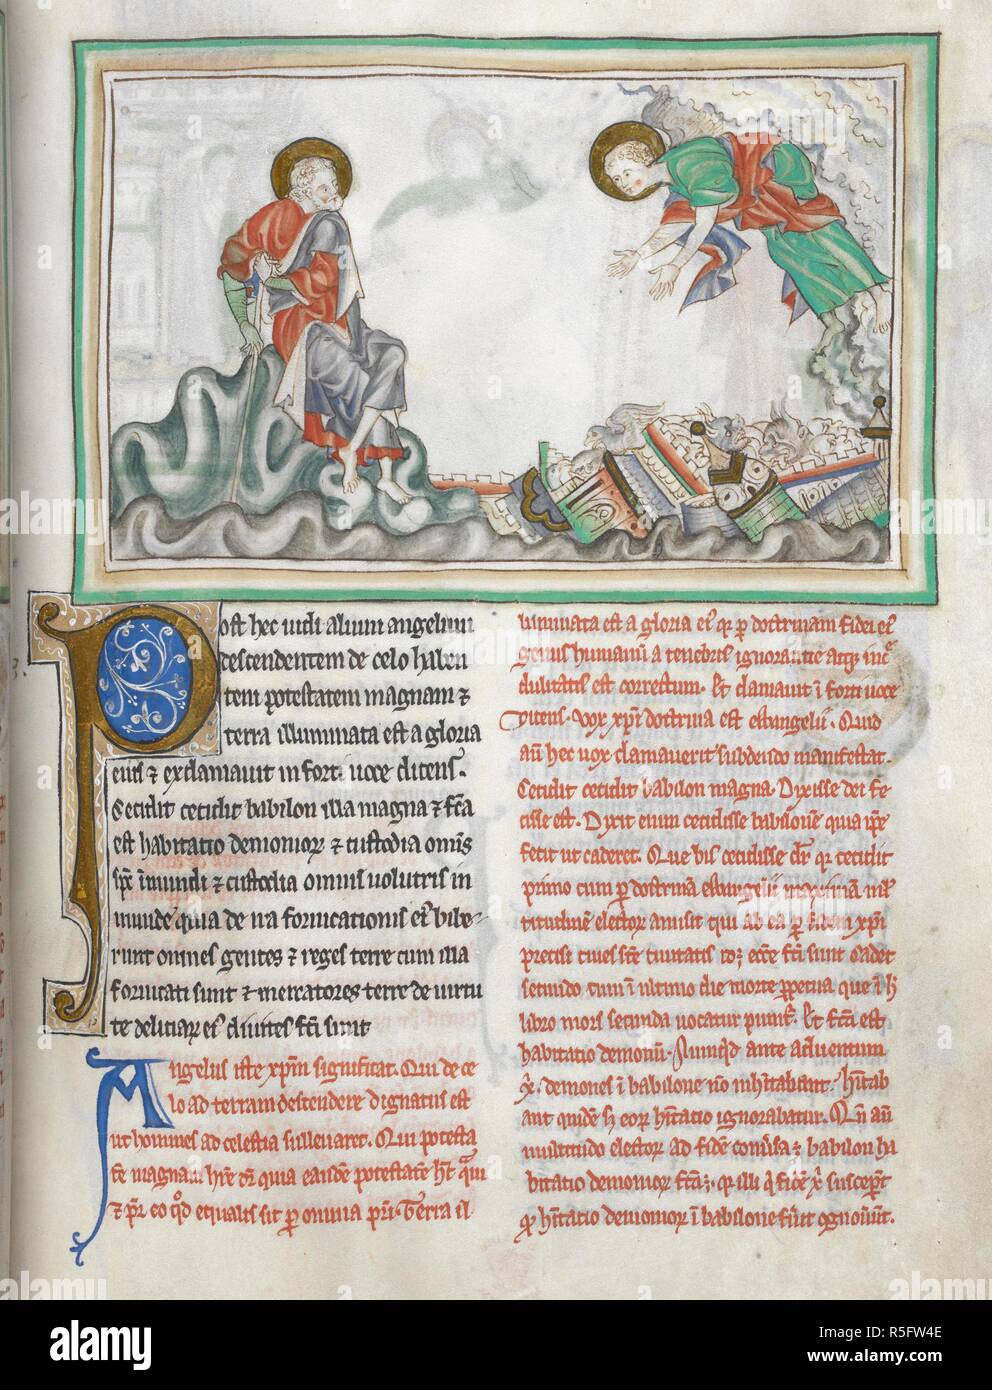 Post hec uidi alium angelum
descendentem de celo haben
tem potestatem magnam ⁊
terra illuminata est a gloria
eius ⁊ exclamauit in fort. uoce dicens.
Cecidit cecidit babilon illa magna ⁊ fca
est habitatio demonior ⁊ custodia omis
sps immundi ⁊ custodia omnis uolucris in
munde quia de ira fornicationis ei bibe
runt omnes gentes ⁊ reges terre cum illa
fornicati sunt ⁊ mercatores terre de uirtu
te deliciar ei diuites fci sunt
Angelus iste xpm significat. Qui de ce
lo ad terram descendere dignatus est
ut homines ad celestia sulleuaret. Qui potesta
te magnam hre dr quia eandē potestatē ht qua
⁊ pr eo qd equalis sit p omnia pri. Terra il
luminata est a gloria ei q p doctrinam fidei ei
genus humanū a tenebris ignorantie atq incre
dulitatis est correctum. Et clamauit ī forti uoce
dicens. Vox xpi doctrina est euangelii. Quid
aū hec uox clamauerit subdendo manifestat.
Cecidit cecidit babilon magna. Dixisse dei fe
cisse est. Dixit enim cecidisse babilonē quia ipe
fecit ut caderet. Que bis cecidisse dr q cecidit
primo cum p doctrinā euangelii maximā ml
titudinē elector amisit qui ab ea p fidem xpi
precisi ciues sce ciuitatis
secundo cum ī ultimo die morte ppetua que ī h
libro mors secunda uocatur puniet. Et fca est
habitatio demonū. Nunqd ante aduentum
xi. demones ī babilone nō inhitabant. hitab
ant quidē s eor hitatio ignorabatur. Qn aū
multitudo elector ad fidē conuersa ⁊ babilon ha
bitatio demonior fca
q hitatio demonior ī babilone fuit
alamy
Image ID: R5FW4E
www.alamy.com